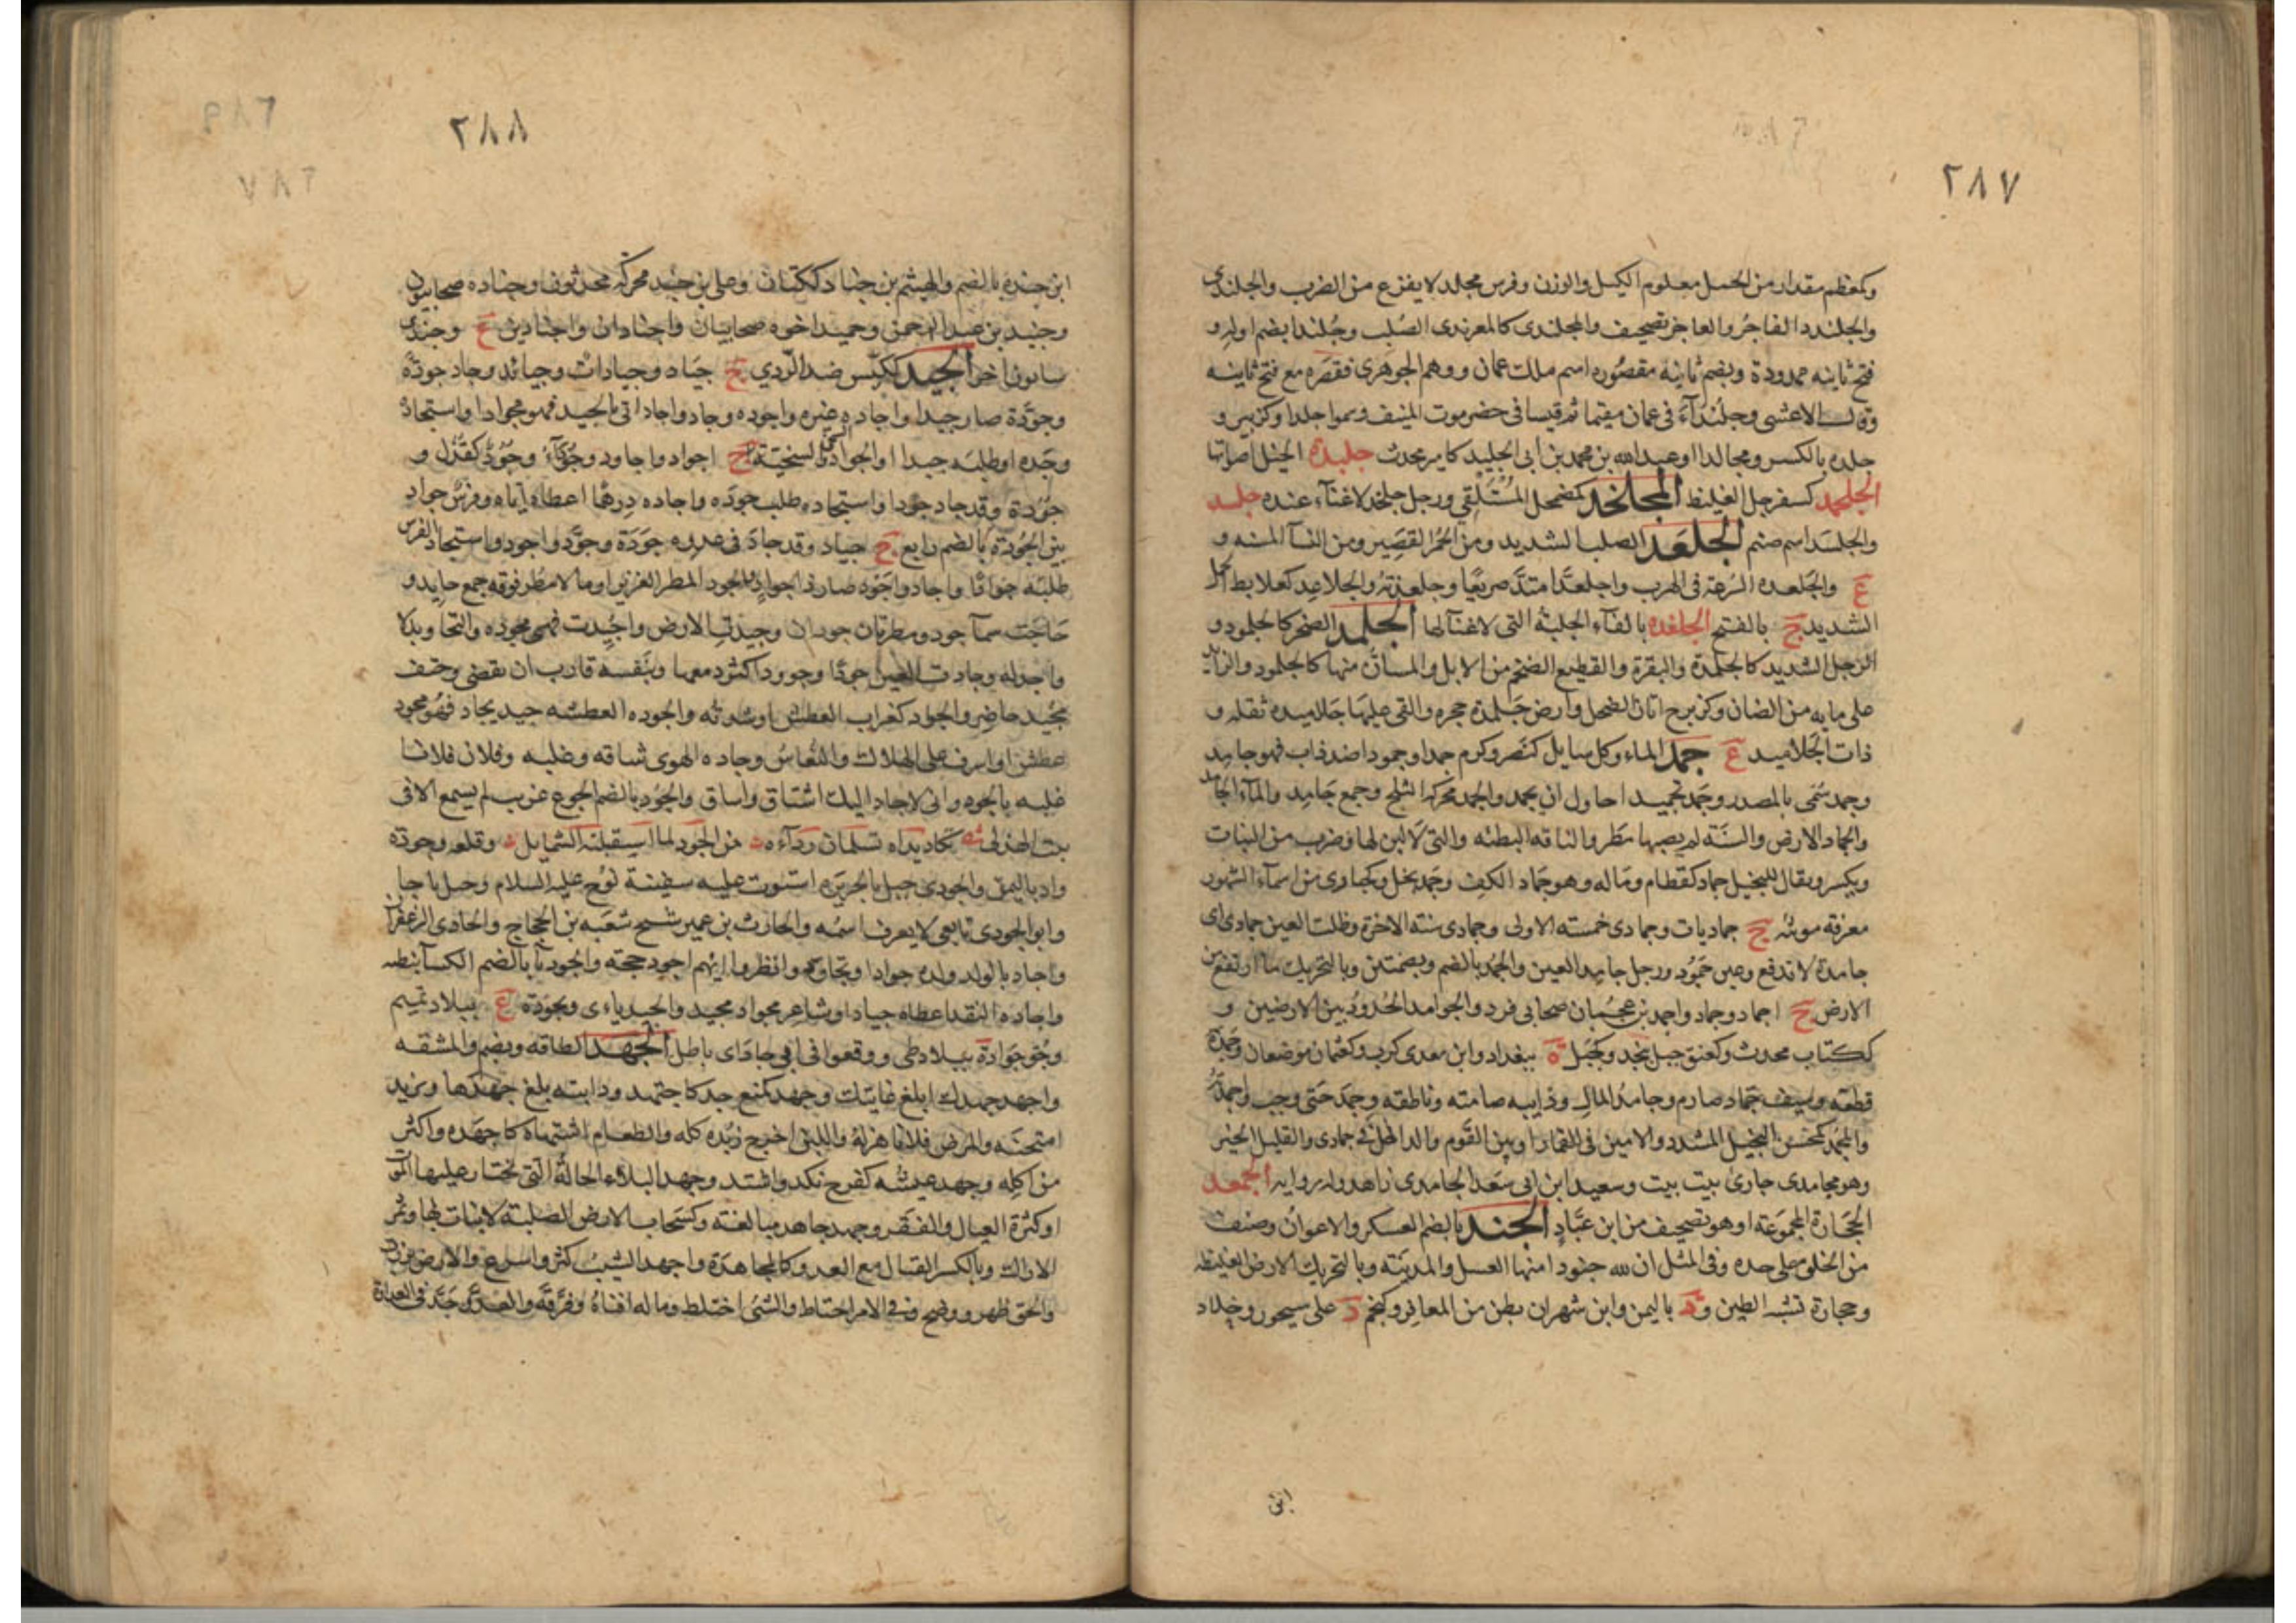 ٢٨٧
وكمعظم مقدار من الحمل معلوم الكيل والوزن وفرس مجلد لا يفزع من الضرب والجلندى
والجلندد الفاجر والعاجز تصحيف والمجلندى كالمعرندى الصلب وجُلندا بضم اوله و
فتح ثانيه ممدودة وبضم ثانيه مقصوره اسم ملك عمان ووهم الجوهرى فقصره مع فتح ثانيه
وقال الاعشى وجلنداء فى عمان مقيما ثم قيسا فى حضرموت المنيف وسموا جلدا وكزبير و
جلده بالكسر ومجالدا وعبدالله بن محمد بن ابى الجليد كامير محدث جليدة الخيل اصواتها
الجلحمد كسفرجل الغليظ المجلخد كمضمحل المستلقى ورجل جلخد لا غنآء عنده جلسد
والجلسد اسم صنم الجلعد الصلب الشديد ومن الحمر القصير ومن النسآ المسنه و
ع والجلعدة السرعة فى الهرب واجلعد امتد صريعًا وجلعدته والجلاعد كعلابط الجمل
الشديد ج بالفتح الجلغده بالفآء الجلبة التى لا غنآ لها الجلمد الصخر كالجلود و
الرجل الشديد كالجلمدة والبقرة والقطيع الضخم من الابل والمسان منها كالجلمود والزايد
على مايه من الضان وكزبرج اتان الضحل وارض جَلمدة حجره والقى عليها جلاميده ثقله و
ذات الجلاميد ع جمد الماء وكل سايل كنصر وكرم جمدا وجمودا ضد ذاب فهو جامد
وجمد سمى بالمصدر وجمد تجميدا حاول ان يجمد والجمد محركه الثلج وجمع جامد والمآء الجامد
والجماد الارض والسنة لم يصبها مطر والناقه البطئه والتى لا لبن لها وضرب من النبات
ويكسر ويقال للبخيل جماد كقطام وماله وهو جماد الكف وجمد بخل وكحبارى من اسمآء الشهور
معرفة مونثه ج جماديات وجمادى خمسته الاولى وجمادى سته الاخرة وظلت العين جمادى اى
جامدة لا تدفع وعين جَمُود ورجل جامد العين والجُمد بالضم وبضمتين وبالتحريك ما ارتفع من
الارض ج اجماد وجماد واجمد بن عجُيان صحابى فرد والجوامد الحُدود بين الارضين و
ككتاب محدث وكعنق جبل بنجد وكجبل ة ببغداد وابن معدى كرب وكعثمان موضعان وجمدة
قطعه وسيف جماد صارم وجامد المال وذايبه صامته وناطقه وجمد حقى وجب واجمدته
والمجمد كمحسن البخيل المتشدد والامين فى القمار او بين القوم والداخل فى جمادى والقليل الخير
وهو مجامدى جارى بيت بيت وسعيد ابن ابى سعد الجامدى زاهد وله روايه الجمعد
الحجارة المجموعة او هو تصحيف من ابن عبّاد الجند بالضم العسكر والاعوان وصنف
من الخلق على حده وفى المثل ان لله جنودا منها العسل والمدينه وبالتحريك الارض الغليظه
وحجارة تشبه الطين ود باليمن وابن شهران بطن من المعافر وكنجم د على سيحون وخلاد
ابن
٢٨٨
ابن جنده بالضم والهيثم بن جناد ككتان وعلى بن جند محركه محدثون وجناده صحابيون
وجنيد بن عبدالرحمن وحميد اخوه صحابيان واجنادان واجنادين ع وجندى
سابور اخر الجيد ككيس ضد الردي ج جياد وجيادات وجيائد وجاد جودةً
وجَودة صار جيدا واجاده غيره واجوده وجاد واجاد اتى بالجيد فهو مجواد واستجاده
وجده او طلبه جيدا والجواد السخى والسخيّة ج اجواد واجاود وجُوَداء وجُودٌ كقُذُل و
جُوَدة وقد جاد جودا واستجاده طلب جوده واجاده درهمًا اعطاه اياه وفرسٌ جواد
بين الجُودة بالضم رايع ج جياد وقد جادَ فى عدوه جَودَة وجوّد واجود واستجاد الفرس
طلبه جوادًا واجاد واجود صار ذا جوادٍ والجود المطر الغزير او ما لا مطر فوقه جمع جايد و
هاجت سمآ جود ومطرتان جودان وجيدت الارض واجيدت فهى مجوده والتجاويد لا
واحد له وجادت العين جودًا وجوودا كثر دمعها وبنفسه قارب ان يقضى وحتف
مجيد حاضر والجواد كغراب العطش او شدته والجوده العطشه جيد يجاد فهو مجود
عطش او اشرف على الهلاك والنُعاس وجاده الهوى شاقه وغلبه وفلان فلانا
غلبه بالجود وانى لاجاد اليك اشتاق واساق والجُود بالضم الجوع غريب لم يسمع الا فى
بيت الهذلى شه تكاد يداه تسلمان ردآءه ث من الجُود لما استقبلته الشمايل ث وقلعه وجودة
واد باليمن والجودى جبل بالجزيره استوت عليه سفينة نوح عليه السلام وجبل باجا
وابو الجودى تابعى لا يعرف اسمه والحارث بن عمير شيخ شعبه بن الحجاج والجادى الزعفران
واجاد بالولد ولده جوادا وتجاودوا وانظروا ايهم اجود حجته والجودياء بالضم الكسآ نبطيه
واجاده النقد اعطاه جيادا وشاعر مجواد مجيد والجيد ياءى وجودة ع ببلاد تميم
وجَوجَوادة ببلاد طى ووقعوا فى ابى جادَ اى باطل الجهد الطاقه ويضم والمشقه
واجهد جهدك ابلغ غايتك وجهد كمنع جد كاجتهد ودابته بلغ جهدها وبزيد
امتحنه والمرض فلانا هزلهُ واللبن اخرج زبده كله والطعام اشتهاه كاجهده واكثر
من اكله وجهد عيشه كفرح نكد واشتد وجهد البلاء الحالة التى تختار عليها الموت
او كثرة العيال والفقر وجهد جاهد مبالغه وكسَحاب الارض الصلبة لا نبات بها وثمر
الاراك وبالكسر القتال مع العدو كالمجاهدة واجهد الشيبُ كثر واسرع والارض برزت
والحق ظهر ووضح وفى الامر احتاط والشئ اختلط وماله افناهُ وفرّقه والعدوّ جَدّ فى العداوة